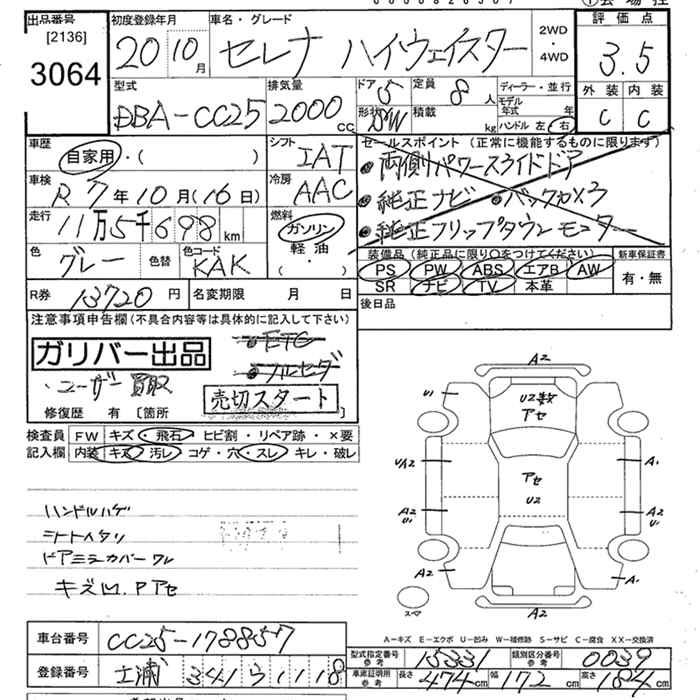 出品番号 初度登録年月 車名・グレード 評価点
[2136] 3064 20年10月 セレナ ハイウェイスター 2WD・4WD 3.5
外装 内装
C C
型式 排気量 ドア 形状 定員 積載 ディーラー・並行
DBA-CC25 2000cc 5 SW 8人 kg モデル年式 年
ハンドル 左・右
車歴 シフト セールスポイント (正常に機能するものに限ります)
自家用・( ) IAT ●両側パワースライドドア
車検 冷房 ●純正ナビ ●バックカメラ
R7年10月(16日) AAC ●純正フリップダウンモニター
走行 燃料
11万5千698km ガソリン・軽油・
色 色替 色コード 装備品(純正品に限り○をつけてください) 新車保証書
グレー KAK PS PW ABS エアB AW 有・無
SR ナビ TV 本革
R券 13720円 名変期限 月 日 後日品
注意事項申告欄(不具合内容等は具体的に記入して下さい)
ガリバー出品 ●ETC
・ユーザー買取 ●フルセグ
売切スタート
修復歴 有 [箇所 ]
検査員 FW キズ・飛石・ヒビ割・リペア跡・×要
記入欄 内装 キズ・汚レ・コゲ・穴・スレ・キレ・破レ
ハンドルハゲ
シートヘタリ
ドアミラーカバーワレ
キズM.Pアセ
A2
U1 U2数 アセ
UA2 アセ U2 A1
A2 U1 A2 U1
A2 A1
スペア A2
A-キズ E-エクボ U-凹み W-補修跡 S-サビ C-腐食 XX-交換済
車台番号 CC25-178857
型式指定番号 参考 15331 類別区分番号 参考 0039
登録番号 土浦 341 ラ 1118
車庫証明用 参考 長さ 474cm 幅 172cm 高さ 184cm